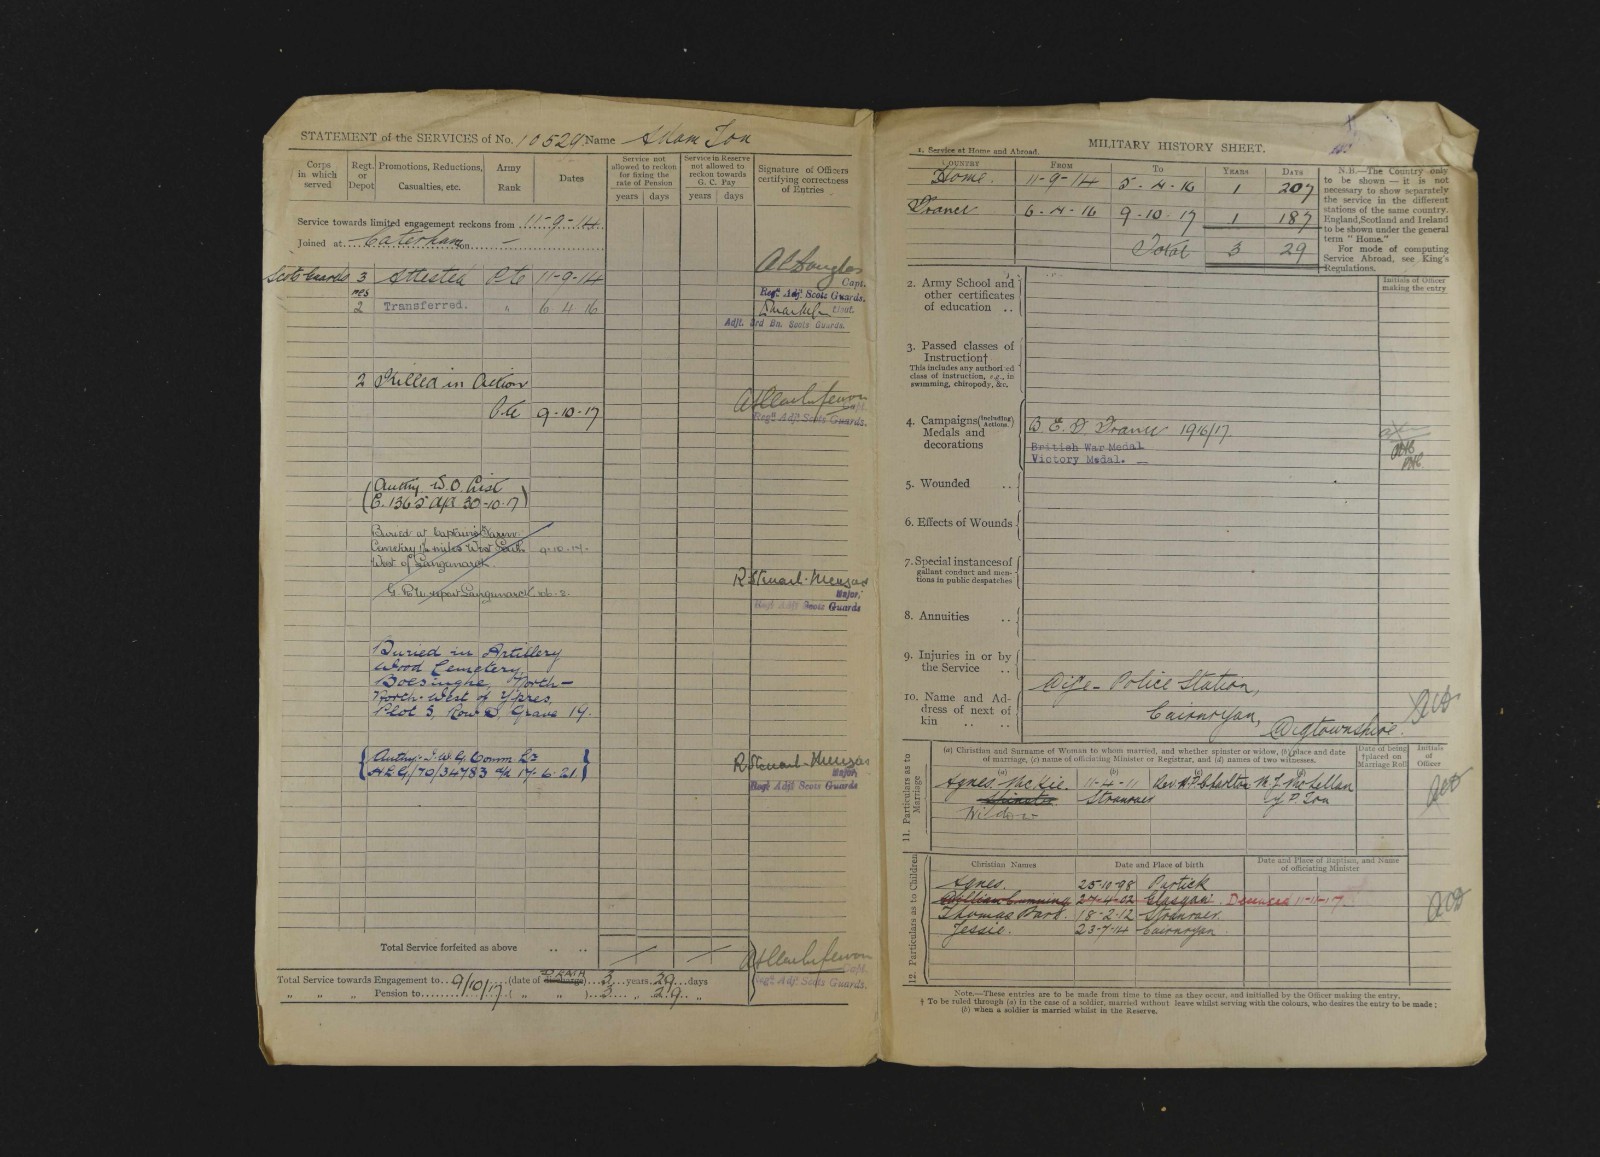 STATEMENT of the SERVICES of No. 10529 Name Adam Ion
Corps in which served
Regt. or Depot
Promotions, Reductions, Casualties, etc.
Army Rank
Dates
Service not allowed to reckon for fixing the rate of Pension
years days
Service in Reserve not allowed to reckon towards G. C. Pay
years days
Signature of Officers certifying correctness of Entries
Service towards limited engagement reckons from 11-9-14
Joined at Caterham on —
Scots Guards 3 Attested Pte 11-9-14
Capt.
Regtl Adjt Scots Guards.
res
2 Transferred. " 6-4-16
Lieut.
Adjt. 3rd Bn. Scots Guards.
2 Killed in Action
Pte 9-10-17
Capt.
Regtl Adjt Scots Guards.
(Authy W.O. List
E.1365 d/d 30-10-17)
Buried at Captain's Farm
Cemetery 1¼ miles West South
West of Langemarck 9-10-17.
G.R.U. report Langemarck
R. Steuart-Menzies
Major.
Regtl Adjt Scots Guards
Buried in Artillery
Wood Cemetery
Boesinghe, North-
North-West of Ypres.
Plot 3, Row D, Grave 19.
{Authy. I.W.G. Comm Lr
H.E.G./70/34783 d/d 17.6.21.}
R. Steuart-Menzies
Major
Regtl Adjt Scots Guards
Total Service forfeited as above .. ..
Capt.
Regtl Adjt Scots Guards.
Total Service towards Engagement to 9/10/17 (date of discharge) DEATH 3 years 29 days
" " " Pension to ( " " ) 3 " 29 "
MILITARY HISTORY SHEET.
1. Service at Home and Abroad.
COUNTRY FROM TO YEARS DAYS
Home. 11-9-14 5-4-16 1 207
France 6-4-16 9-10-17 1 187
Total 3 29
N.B.—The Country only
to be shown — it is not
necessary to show separately
the service in the different
stations of the same country.
England, Scotland and Ireland
to be shown under the general
term "Home."
For mode of computing
Service Abroad, see King's
Regulations.
Initials of Officer
making the entry
2. Army School and
other certificates
of education ..
3. Passed classes of
Instruction†
This includes any authorized
class of instruction, e.g., in
swimming, chiropody, &c.
4. Campaigns (including Actions)
Medals and
decorations
B.E.F. France 1916/17
British War Medal
Victory Medal. —
5. Wounded ..
6. Effects of Wounds
7. Special instances of
gallant conduct and men-
tions in public despatches
8. Annuities ..
9. Injuries in or by
the Service ..
10. Name and Ad-
dress of next of
kin .. ..
Wife - Police Station,
Cairnryan,
Wigtownshire.
11. Particulars as to Marriage
(a) Christian and Surname of Woman to whom married, and whether spinster or widow, (b) place and date
of marriage, (c) name of officiating Minister or Registrar, and (d) names of two witnesses.
Date of being
†placed on
Marriage Roll
Initials
of
Officer
(a) (b) (c) (d)
Agnes McKie. 11-4-11 Rev. A.P. Charlton M.J. McLellan
Spinster Stranraer
Widow
12. Particulars as to Children
Christian Names
Date and Place of birth
Date and Place of Baptism, and Name
of officiating Minister
Agnes. 25-10-98 Partick
William Cumming 27-4-02 Glasgow. Deceased 11-11-17
Thomas Bard. 18-2-12 Stranraer.
Jessie. 23-7-14 Cairnryan
Note.—These entries are to be made from time to time as they occur, and initialled by the Officer making the entry.
† To be ruled through (a) in the case of a soldier, married without leave whilst serving with the colours, who desires the entry to be made;
(b) when a soldier is married whilst in the Reserve.